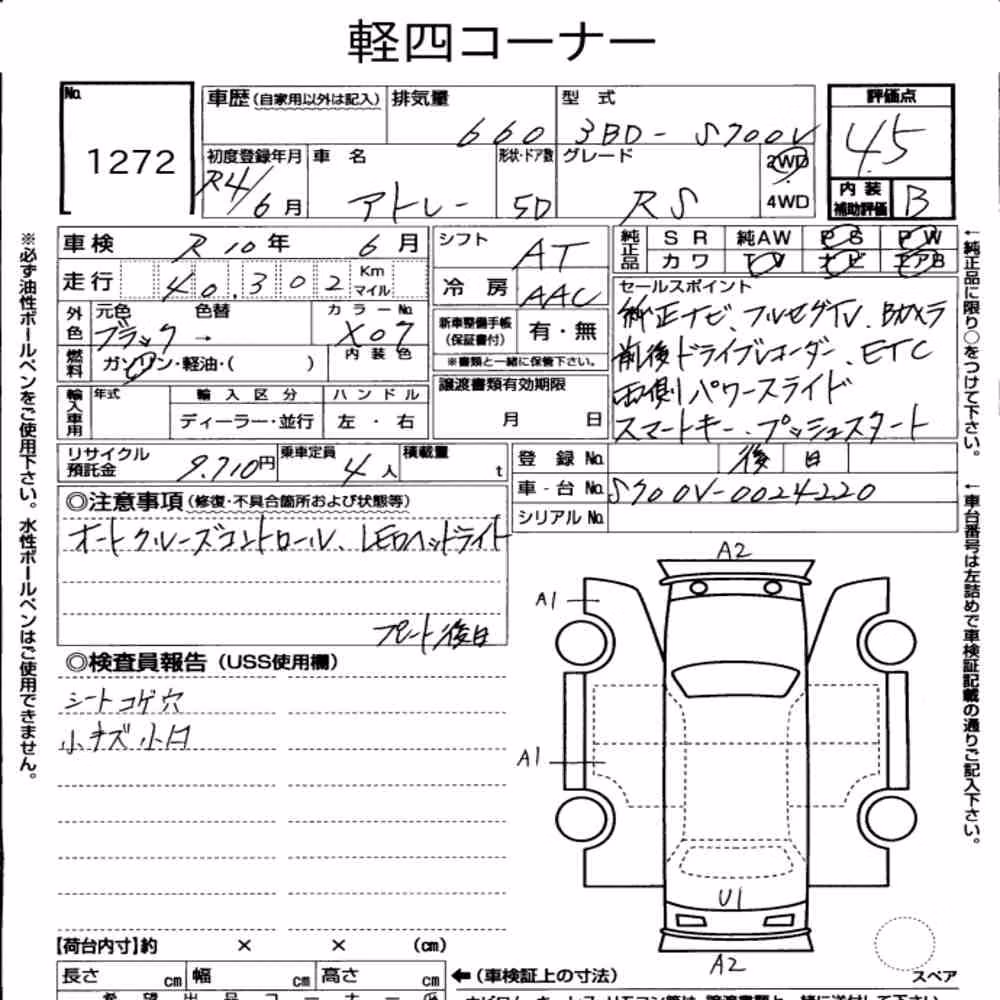 軽四コーナー
No.
1272
車歴 (自家用以外は記入)
排気量 660
型式 3BD- S700V
評価点
4.5
初度登録年月 R4/6月
車名 アトレー
形状・ドア数 5D
グレード RS
2WD
・
4WD
内装
補助評価 B
車検 R10年 6月
走行 40,302 Km マイル
シフト AT
冷房 AAC
純正品 SR 純AW PS PW
カワ TV ナビ エアB
外色 元色 色替 カラーNo.
ブラック → X07
燃料 ガソリン・軽油・( ) 内装色
新車整備手帳
(保証書付) 有・無
※書類と一緒に保管下さい。
セールスポイント
純正ナビ、フルセグTV、Bカメラ
前後ドライブレコーダー、ETC
両側パワースライド
スマートキー、プッシュスタート
輸入車用 年式 輸入区分 ハンドル
ディーラー・並行 左・右
譲渡書類有効期限
月 日
リサイクル
預託金 9,710円
乗車定員 4人
積載量 t
登録No. 後日
車台No. S700V-0024220
シリアルNo.
◎注意事項 (修復・不具合箇所および状態等)
オートクルーズコントロール、LEDヘッドライト
プレート後日
◎検査員報告 (USS使用欄)
シートコゲ穴
小キズ小凹
A2
A1
A1
U1
A2
スペア
【荷台内寸】約 × × (cm)
長さ cm 幅 cm 高さ cm
←(車検証上の寸法)
※必ず油性ボールペンをご使用下さい。水性ボールペンはご使用できません。
←純正品に限り○をつけて下さい。
←車台番号は左詰めで車検証記載の通りご記入下さい。